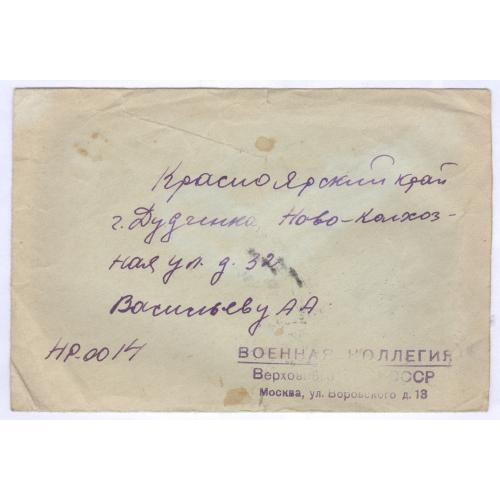 Красноярский край
г. Дудинка, Ново-колхоз-
ная ул. д. 32
Васильеву А А.
НР-0014
ВОЕННАЯ КОЛЛЕГИЯ
СССР
Москва, ул. Воровского д. 13